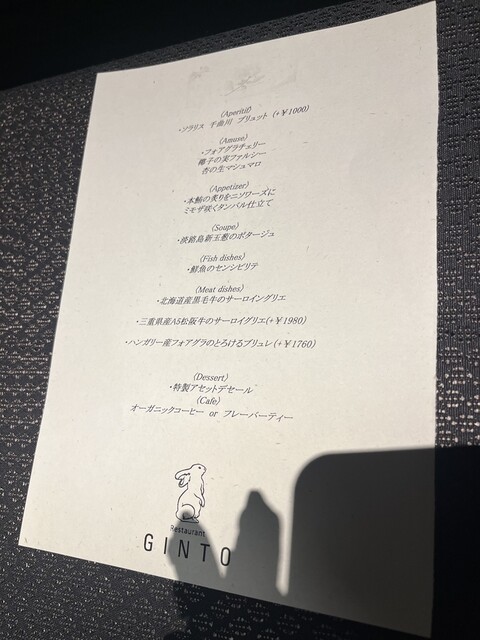 (Aperitif)
・ソラリス 千曲川 ブリュット (+￥1000)
(Amuse)
・フォアグラチェリー
椰子の実ファルシー
杏の生マシュマロ
(Appetizer)
・本鮪の炙りをニソワーズに
ミモザ咲くタンバル仕立て
(Soupe)
・淡路島新玉葱のポタージュ
(Fish dishes)
・鮮魚のセンシビリテ
(Meat dishes)
・北海道産黒毛牛のサーロイングリエ
・三重県産A5松阪牛のサーロイグリエ(+￥1980)
・ハンガリー産フォアグラのとろけるブリュレ(+￥1760)
(Dessert)
・特製アセットデセール
(Cafe)
オーガニックコーヒー or フレーバーティー
Restaurant
GINTO